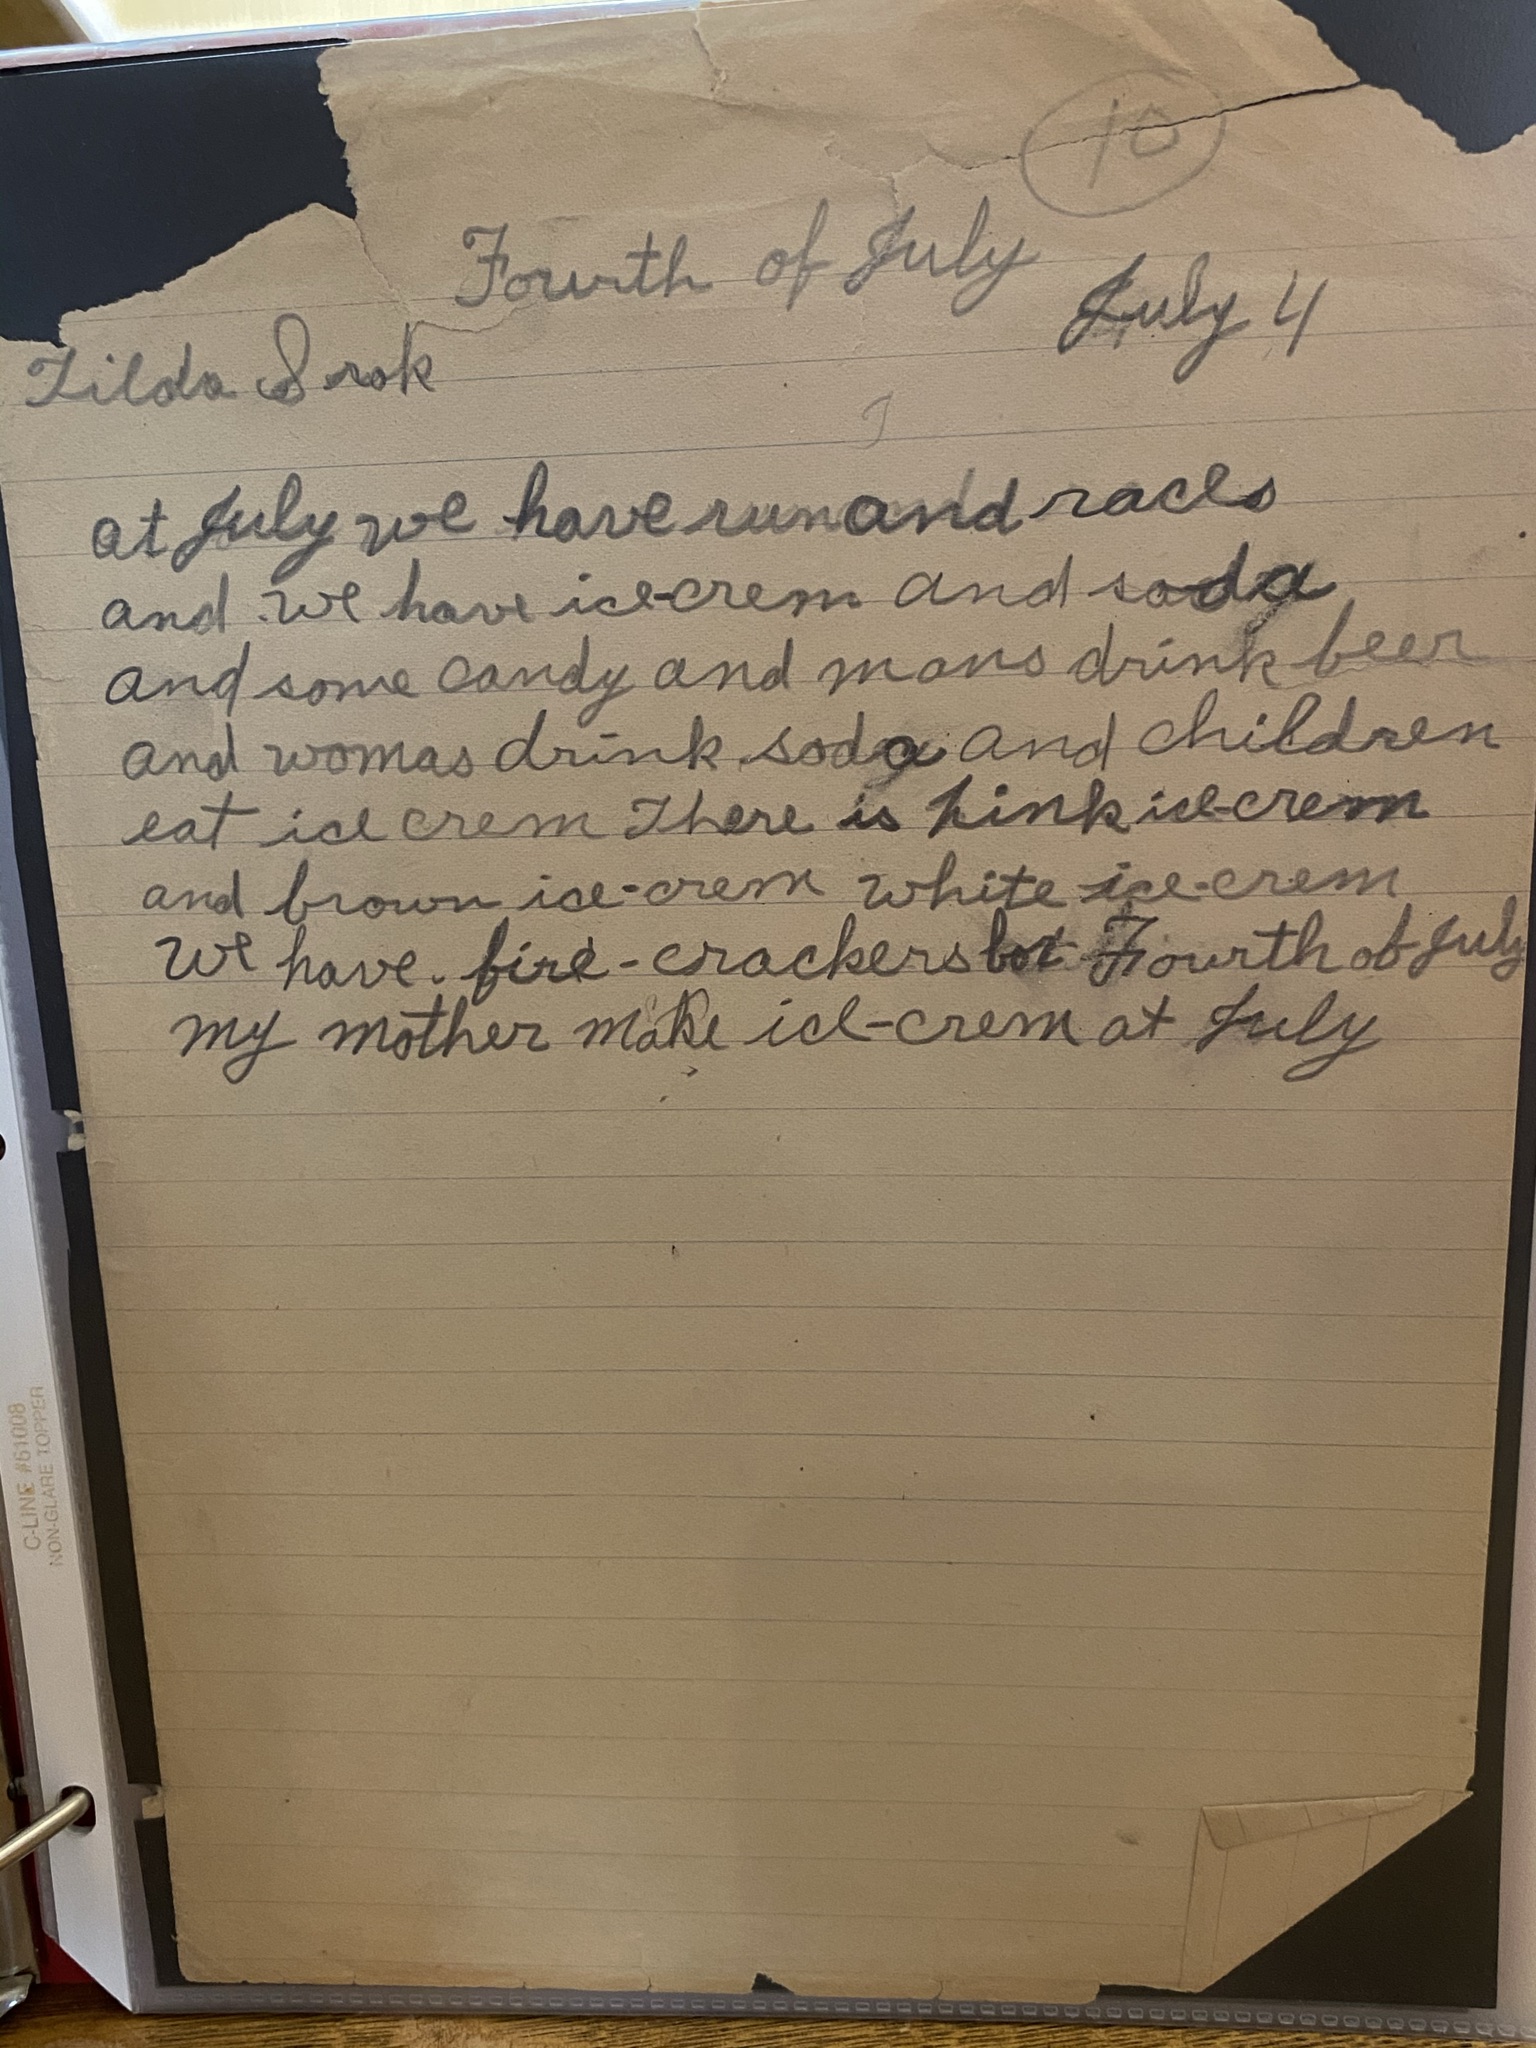 10
Fourth of July
July 4
Tilda Srok
at July we have run and races
and we have ice-crem and soda
and some candy and mans drink beer
and womas drink soda and children
eat ice crem There is pink ice-crem
and brown ice-crem white ice-crem
We have fire-crackers for Fourth of July
my mother make ice-crem at July
C-LINE #61008
NON-GLARE TOPPER